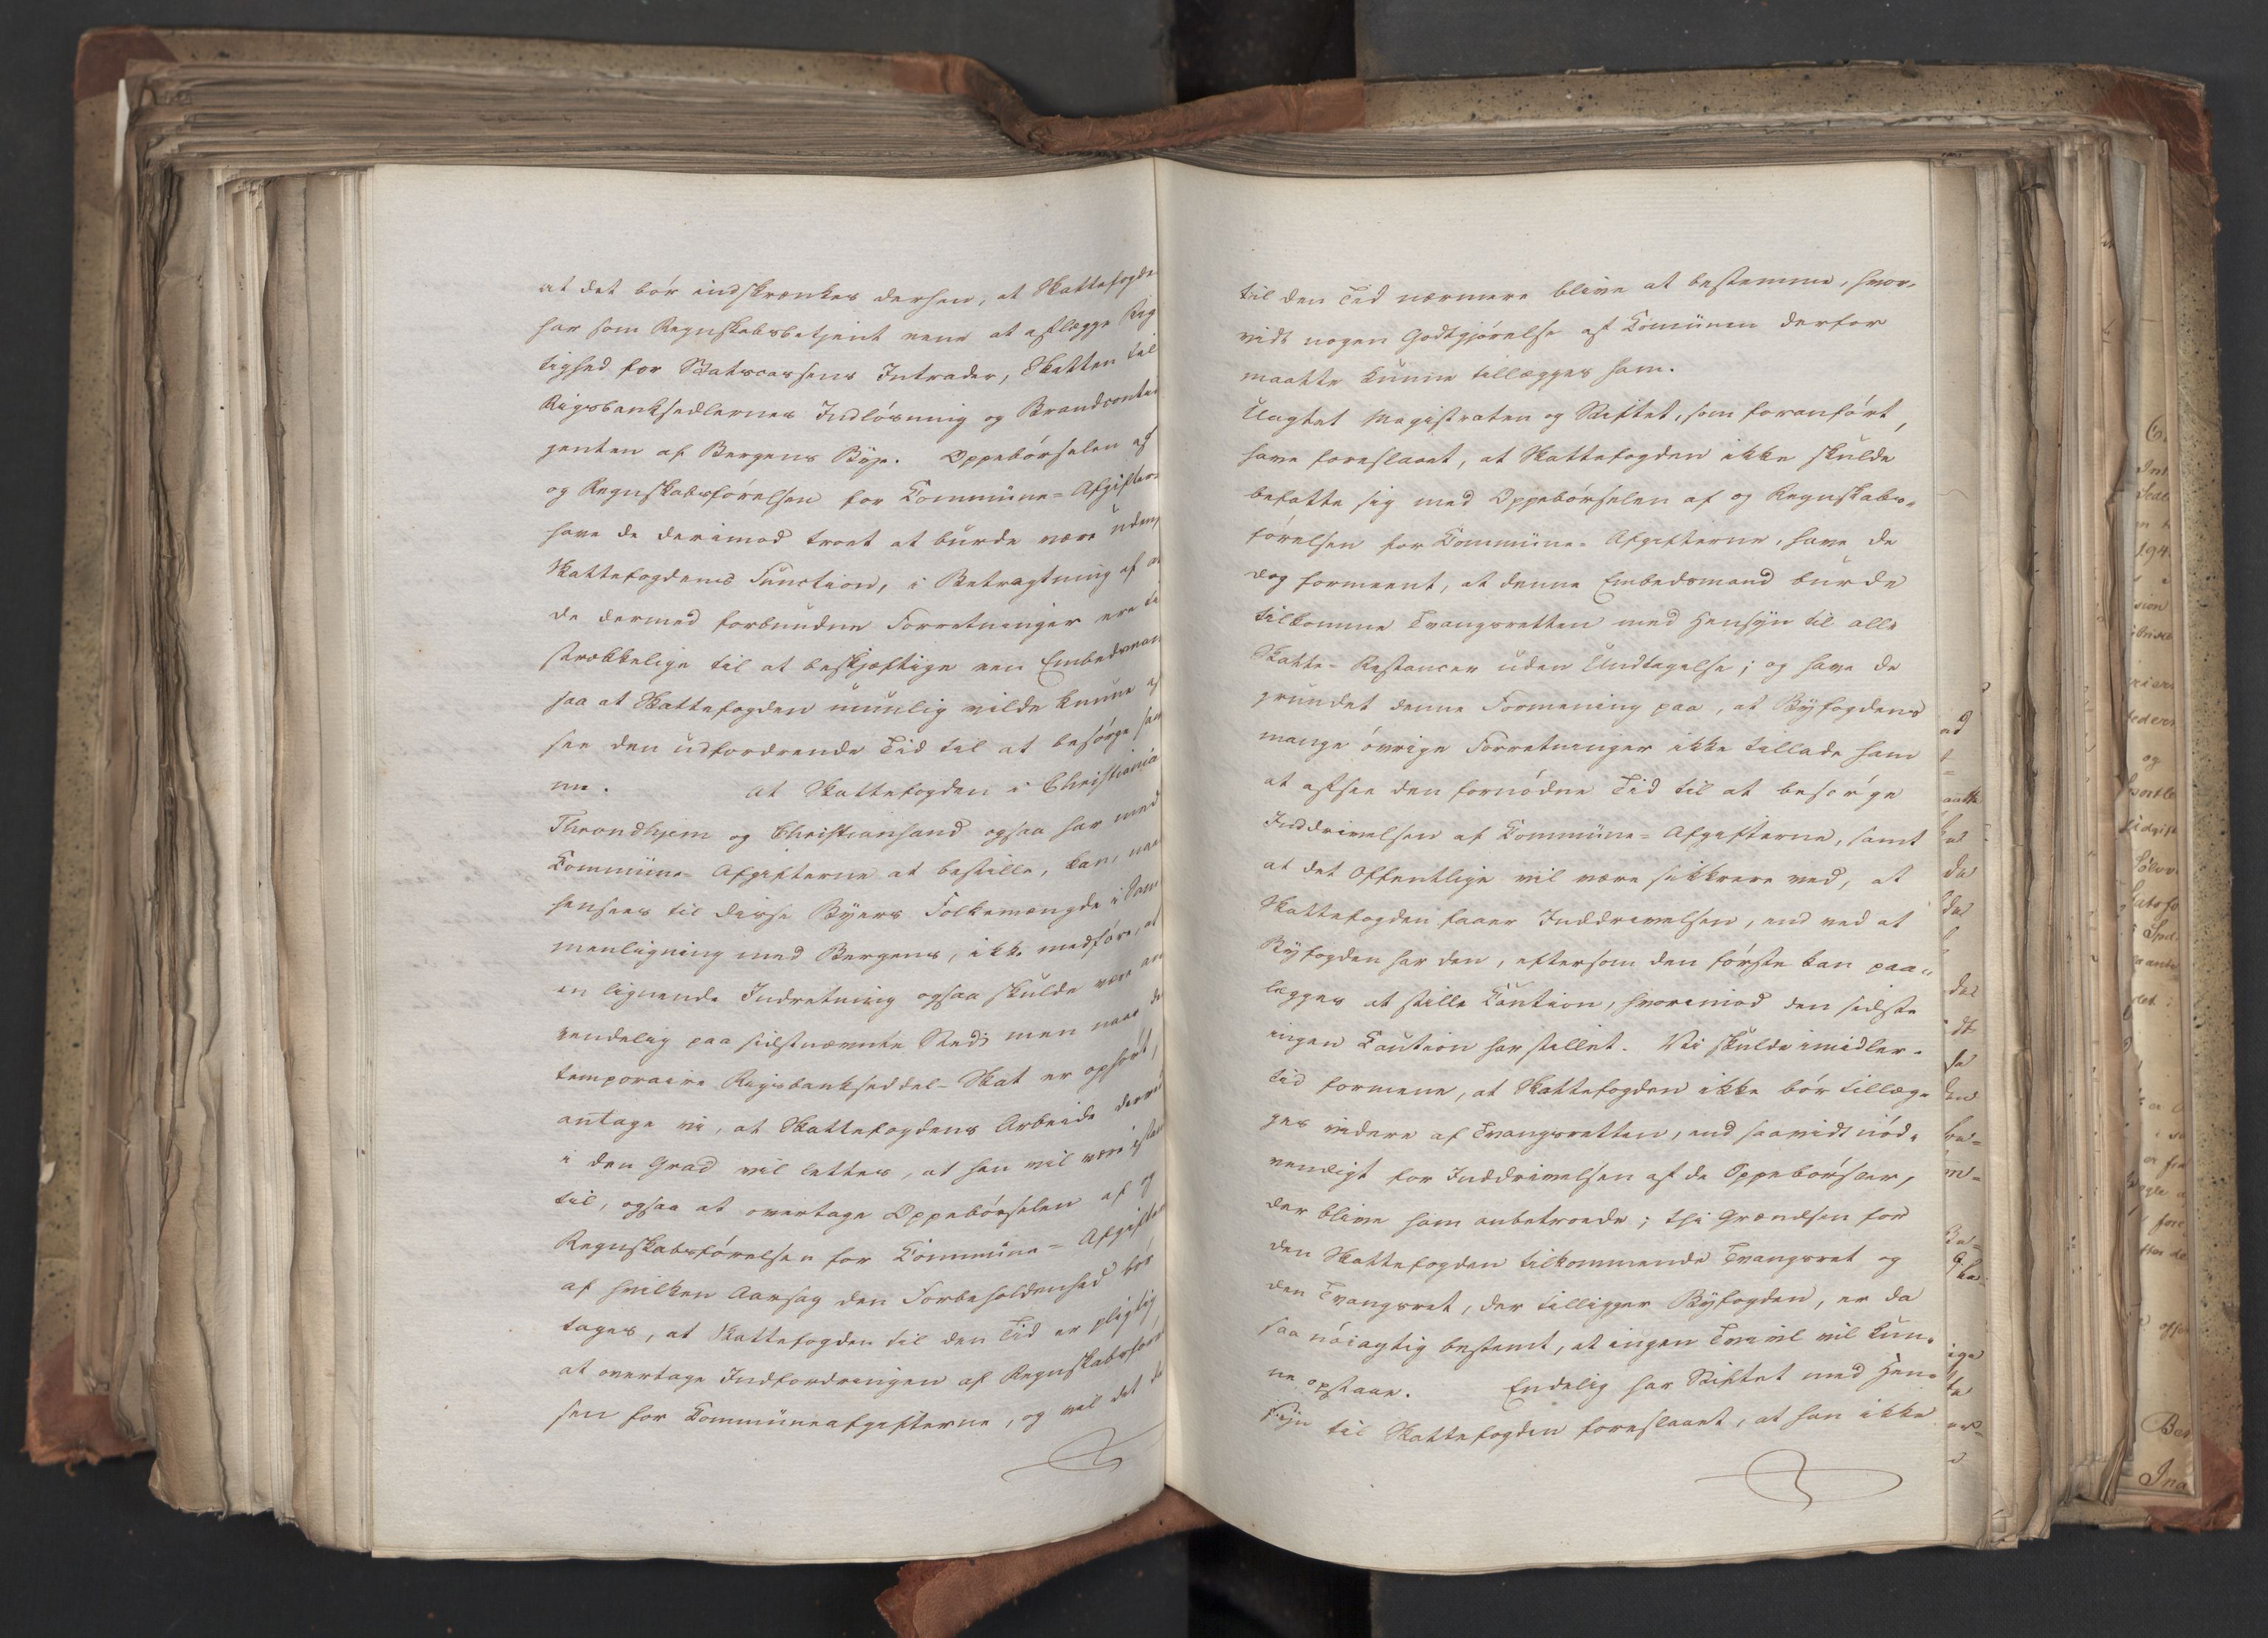 at det bør indskrænkes derhen, at Skattefogde
har som Regnskabsbetjent ene at aflægge Rig
tighed for Statscassens Intrader, Skatten til
Rigsbanksedlernes Indløsning og Brandcontin
genten af Bergens Bye. Oppebørselen af
og Regnskabsførelsen for Commüne-Afgifter
have de derimod troet at burde være uden
Skattefogdens Function, i Betragtning af at
de dermed forbundne Forretninger ere ti
strækkelige til at beskjæftige een Embedsman
saa at Skattefogden umulig vilde kunne af
see den udfordrende Tid til at besørge sam
me. at Skattefogden i Christiania
Throndhjem og Christiansand ogsaa har med
Commüne-Afgifterne at bestille, kan, naar
hensees til disse Byers Folkemængde i Sam
menligning med Bergens, ikke medføre, at
en lignende Indretning ogsaa skulde være an
vendelig paa sidstnævnte Sted; men naar de
temporaire Rigsbankseddel-Skat er ophørt,
antage vi, at Skattefogdens Arbeide derved
i den Grad vil lettes, at han vil være istan
til, ogsaa at overtage Oppebørselen af og
Regnskabsførelsen for Commüne-Afgifter
af hvilken Aarsag den Forbeholdenhed bør
tages, at Skattefogden til den Tid er pligtig
at overtage Indfordringen af Regnskabsførel
sen for Commüneafgifterne, og vil det da
til den Tid nærmere blive at bestemme, hvor-
vidt nogen Godtgjørelse af Comünen derfor
maatte kunne tillægges ham.
Uagtet Magistraten og Stiftet, som foranført,
have foreslaaet, at Skattefogden ikke skulde
befatte sig med Oppebørselen af og Regnskabs-
førelsen for Commüne-Afgifterne, have de
dog formeent, at denne Embedsmand burde
tilkomme Tvangsretten med Hensyn til alle
Skatte-Restancer uden Undtagelse; og have de
grundet denne Formening paa, at Byfogdens
mange øvrige Forretninger ikke tillade ham
at afsee den fornødne Tid til at besørge
Inddrivelsen af Commüne-Afgifterne, samt
at det Offentlige vil være sikkrere ved, at
Skattefogden faaer Inddrivelsen, end ved at
Byfogden har den, eftersom den første kan paa-
lægges at stille Caution, hvorimod den sidste
ingen Caution har stillet. Vi skulde imidler-
tid formene, at Skattefogden ikke bør tillæg-
ges videre af Tvangsretten, end saavidt nød-
vendigt for Inddrivelsen af de Oppebørsler,
der blive ham anbetroede; thi Grændsen for
den Skattefogden tilkommende Tvangsret og
den Tvangsret, der tilligger Byfogden, er da
saa nøiagtig bestemt, at ingen Tvivl vil kun-
ne opstaae. Endelig har Stiftet med Hen-
syn til Skattefogden foreslaaet, at han ikke